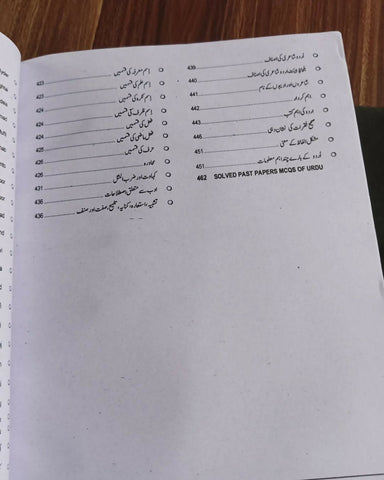 اسم معرفہ کی قسمیں 423
اسم علم کی قسمیں 423
اسم نکرہ کی قسمیں 424
اسم ظرف کی قسمیں 424
فعل کی قسمیں 424
فعل ماضی کی قسمیں 425
حرف کی قسمیں 426
محاورہ 426
کہاوت اور ضرب المثل 431
ادب سے متعلق اصطلاحات 436
تشبیہ، استعارہ، کنایہ، تلمیح، صنعت اور صنف 436
اردو شاعری کی اصناف 439
شاعری کی اصناف 440
شاعروں اور ادیبوں کے نام 441
اہم کردار 442
اردو کی اہم کتب 443
صحیح فقرات کی نشاندہی 446
مشکل الفاظ کے معنی 451
اردو کے بارے چند اہم معلومات 451
462 SOLVED PAST PAPERS MCQS OF URDU